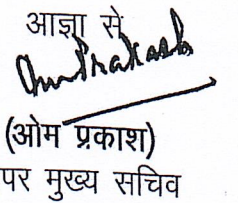 आज्ञा से
Om Prakash
(ओम प्रकाश)
पर मुख्य सचिव